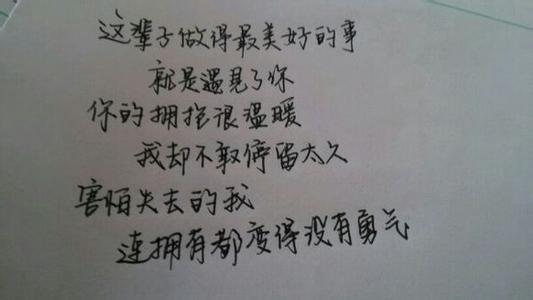 这辈子做得最美好的事
就是遇見了你
你的拥抱很温暖
我却不敢停留太久
害怕失去的我
连拥有都变得没有勇气